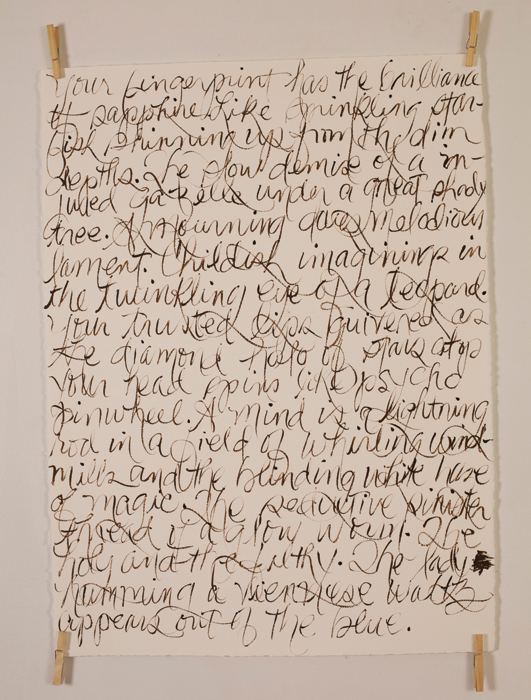 Your fingerprint has the brilliance
of sapphire. Like twinkling star-
fish shinning up from the dim
depths. The slow demise of a in-
jured gazelle under a great shady
tree. A mourning doves melodious
lament. Childish imaginings in
the twinkling eye of a leopard.
Your trusted lips quivered as
the diamond halo of stars atop
your head spins like psycho
pinwheel. A mind is a lightning
rod in a field of whirling wind-
mills and the blinding white haze
of magic. The seductive sinister
thread of a glow worm. The
holy and the filthy. The lady
humming a Viennese waltz
appears out of the blue.